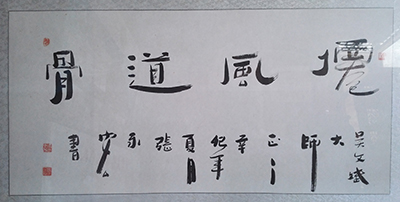 僊風道骨
吴文斌大師正之辛纪年夏月張永書